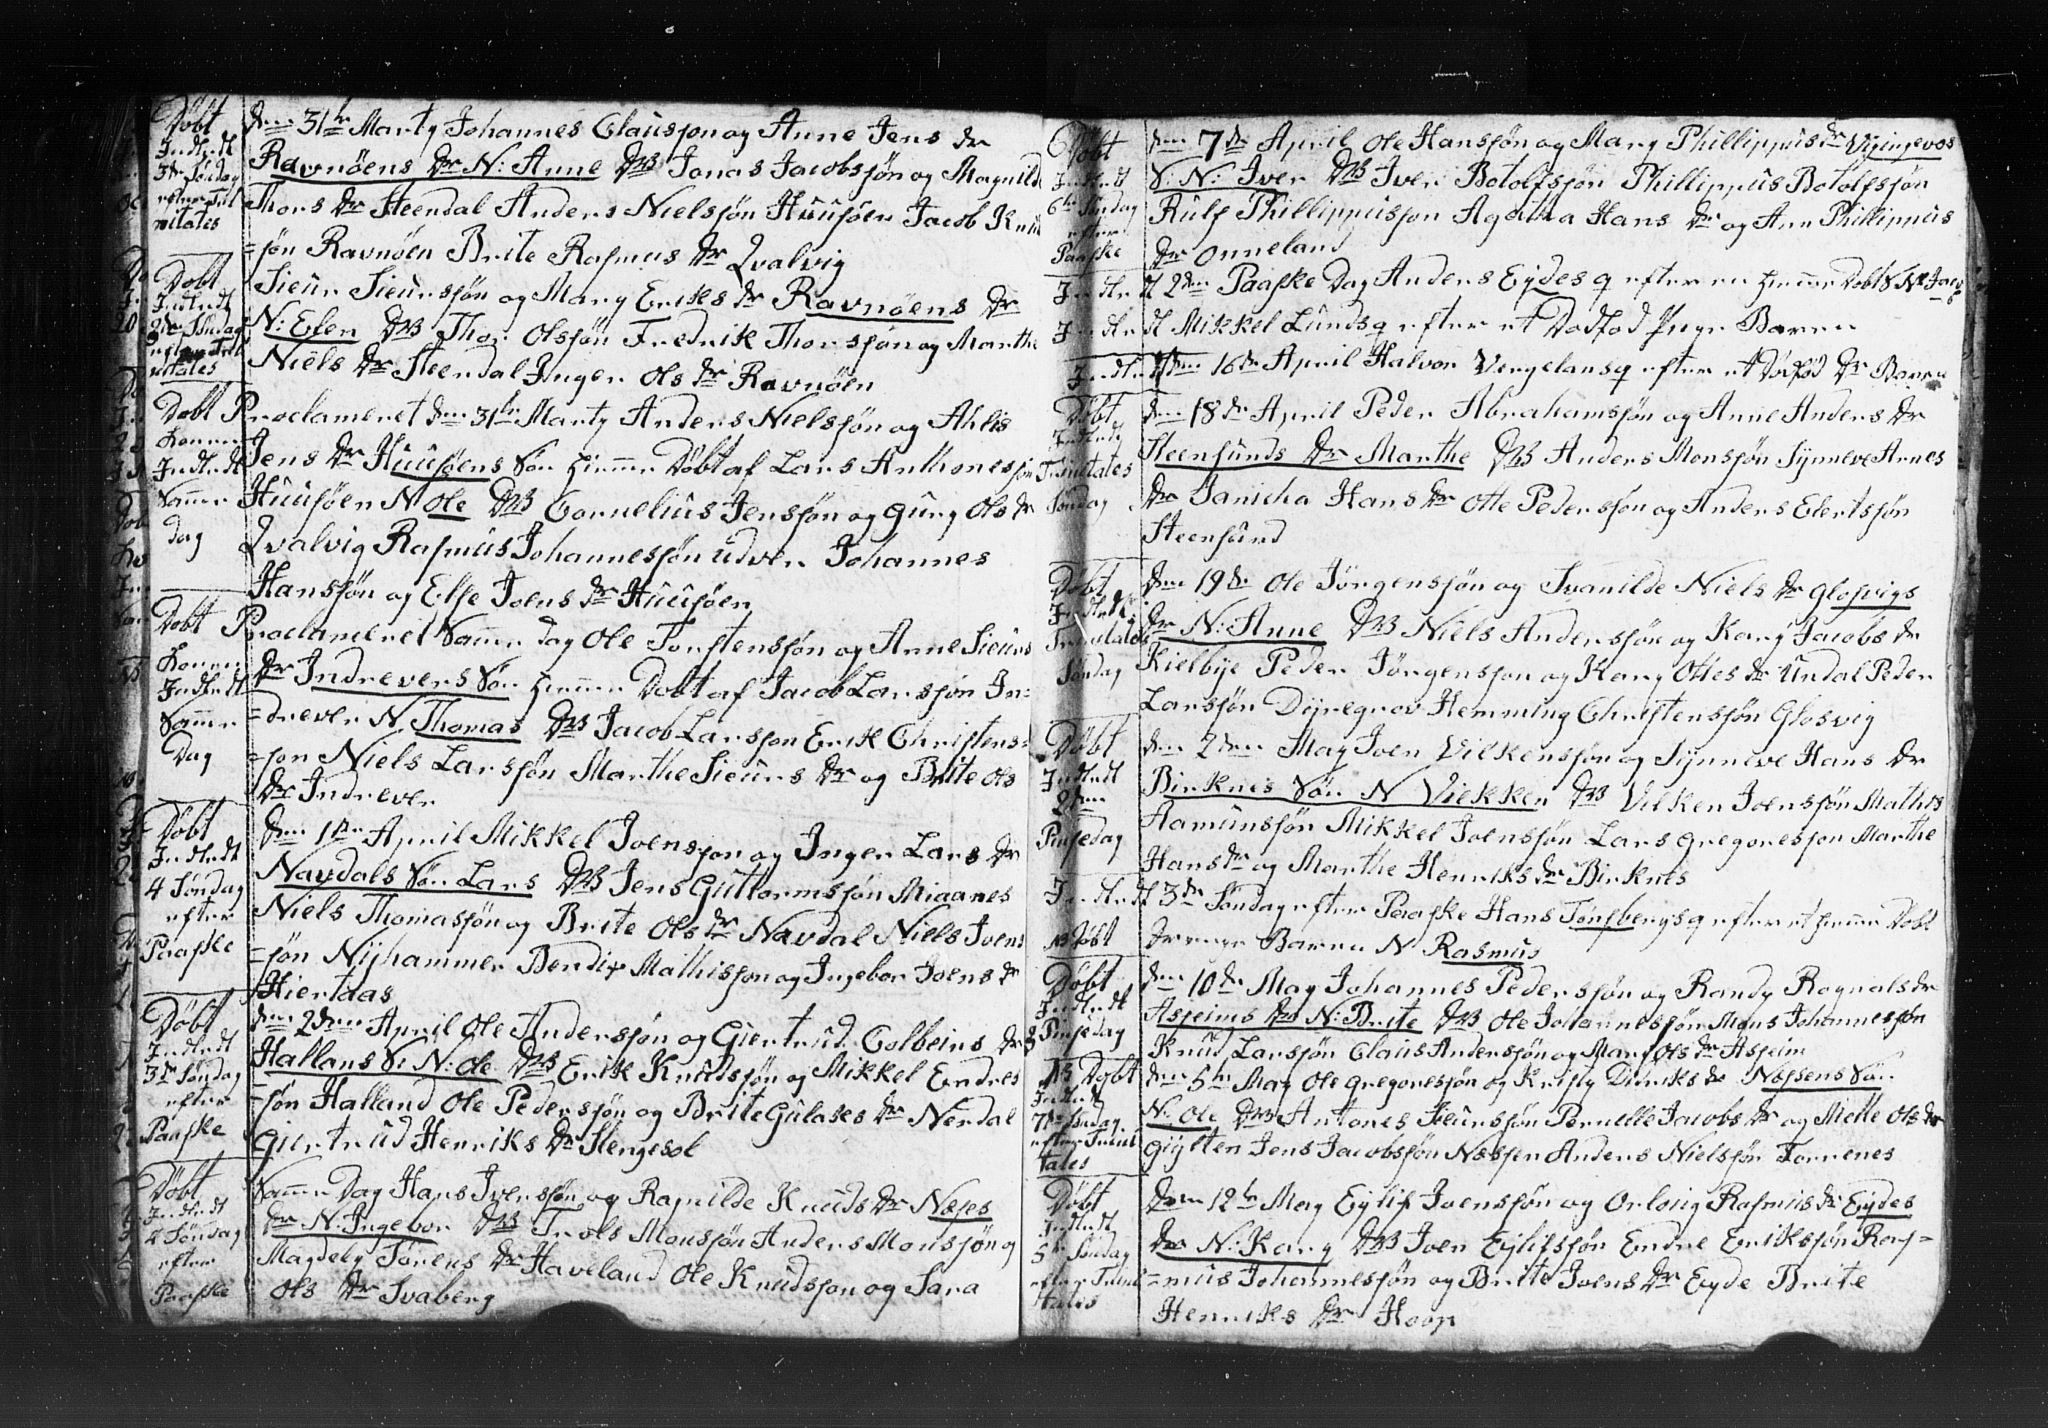 Døbt
Indledt
3de Søndag
efter Tri
nitates
den 31te Marty Johannes Clausson og Anne Jens dr
Ravnøens Dr N: Anne DB Jonas Jacobsøn og Magnilde
Thors dr Steendal Anders Nielssøn Huusøen Jacob Knud
=søn Ravnøen Brite Rasmus dr Qvalvig
Døbt
Indledt
2de Søndag
efter Tri
nitates
Sieur Sieursøn og Mary Eriks dr Ravnøens dr
N: Elen DB Thor Olsøn Fredrik Thorsøn og Marthe
Niels dr Steendal Inger Ols dr Ravnøen
Døbt
Konnen
Indledt
Samme
dag
Proclameret den 31te Marty Anders Nielssøn og Ahlis
Jens dr Huusøens Søn hiemme Døbt af Lars Anthonesøn
Huusøen N Ole DB Cornelius Jensøn og Gury Ols dr
Qvalvig Rasmus Johannesøn Udvær Johannes
Hansøn og Else Joens dr Huusøen
Døbt
Konnen
Indledt
Samme
Dag
Proclameret Samme dag Ole Torstensøn og Anne Sieurs
dr Indrevers Søn hiemme Døbt af Jacob Larsøn In=
=drevær N. Thomas DB Jacob Larsson Erik Christens=
=søn Niels Larsøn Marthe Sieurs dr og Brite Ols
dr Indrever
Døbt
Indledt
4 Søndag
efter
Paaske
den 1ste April Mikkel Joensson og Inger Lars dr
Navdals Søn Lars DB Jens Guttormsøn Miaanes
Niels Thomasøn og Brite Ols dr Navdal Niels Joens
=søn Nyhammer Bendix Mathisson og Ingebor Joens dr
Hiertaas
Døbt
Indledt
3de Søndag
efter
Paaske
den 2den April Ole Anderssøn og Giertrud Colbeins dr
Hallans S: N: Ole DB Erik Knudsøn og Mikkel Endres
=søn Halland Ole Pedersøn og Brite Gulakes dr Nerdal
Giertrud Henriks dr Stengesol
Døbt
Indledt
4 Søndag
efter
Paaske
Samme Dag Hans Iversøn og Ragnilde Knuds dr Næses
dr N. Ingebor DB Trols Monsøn Anders Monsøn og
Magdely Sørens dr Haveland Ole Knudsson og Sara
Ols dr Svaberg
Døbt
Indledt
6te Søndag
efter
Paaske
den 7de April Ole Hansøn og Mary Phillippus dr
S: N: Iver DB Iver Botolfsøn Phillippus Botolfsøn
Rulf Phillippusson Agatha Hans dr og Ann Phillippus
dr Onneland
Indledt 2den Paaske Dag Anders Eydes q efter en hiemme Døbt S N: Jacob
Indledt Mikkel Lunds q efter et Dødfød Pige Barn
Indledt den 16de April Halvor Vergelans q efter et Dødfød dr Barn
Døbt
Indledt
Trinitates
Søndag
den 18de April Peder Abrahamsøn og Anne Anders dr
Steensunds dr Marthe DB Anders Monsøn Synneve Arnes
dr Janicha Hans dr Otte Pedersøn og Anders Elertsøn
Steensund
Døbt
Indledt
Trinitates
Søndag
den 19de Ole Jørgensøn og Svanilde Niels dr Glosvigs
dr N: Anne DB Niels Andersøn og Kary Jacobs dr
Kielbye Peder Jørgensson og Kary Ottes dr Undal Peder
Larsøn Dyregrov Hemming Christensøn Glosvig
Døbt
Indledt
2den
Pinsedag
den 2den May Joen Vilkensøn og Synneve Hans dr
Birknes Søn N Vilkken DB Vilken Joensøn Mathis
Aamunsøn Mikkel Joensøn Lars Gregoresson Marthe
Hans dr og Marthe Henriks dr Birknes
Indledt 3de Søndag efter Paaske Hans Tønsbergs q efter et hiemme Døbt
NB Døbt
drenge Barn N Rasmus
Døbt
Indledt
3 Pinsedag
den 10de May Johannes Pedersøn og Randy Rognals dr
Aspeims dr N: Brite DB Ole Johannesøn Mons Johannesøn
Knud Larsøn Claus Andersøn og Mary Ols dr Aspeim
NB Døbt
Indledt
7de Søndag
efter Trini
tates
den 5te May Ole Gregoriesøn og Kristy Diriks dr Næssens Søn
N: Ole DB Antones Sieursøn Pernille Jacobs dr og Mette Ols dr
Gylten Jens Jacobsøn Næssen Anders Nielsøn Torrenes
Døbt
Indledt
5te Søndag
efter Trini
tates
den 12te May Eylif Joensøn og Orlaug Rasmus dr Eydes
dr N: Kary DB Joen Eylifsøn Endre Eriksøn Ras=
=mus Johannesøn og Brite Joens dr Eyde Brite
Henriks dr Hoop